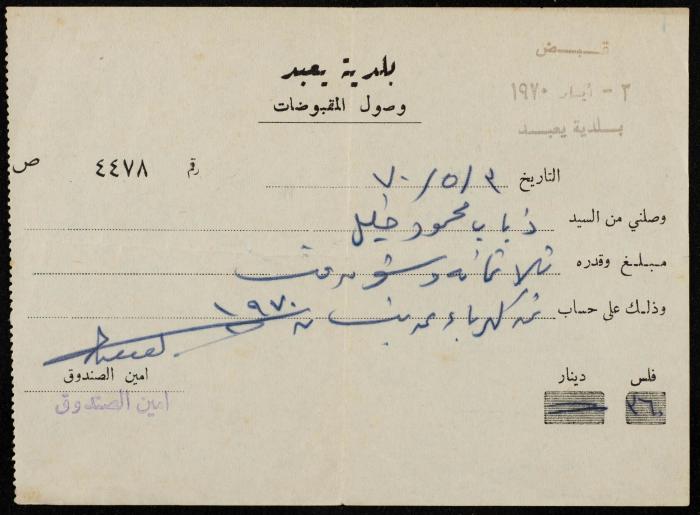 قبض
٢ - أيار ١٩٧٠
بلدية يعبد
بلدية يعبد
وصول المقبوضات
رقم ٤٤٧٨ ص
التاريخ ٣ / ٥ / ٧٠
وصلني من السيد ذياب محمود خليل
مبلغ وقدره ثلاثمائه وستون فلس
وذلك على حساب ثمن كهرباء عن نيسان ١٩٧٠
امين الصندوق
امين الصندوق
فلس دينار
٣٦٠